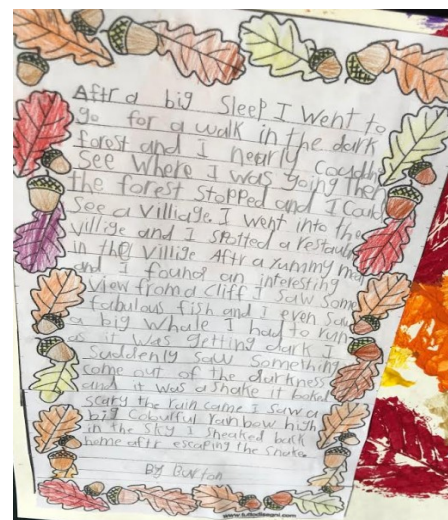 Aftr a big Sleep I went to
go for a walk in the dark
forest and I nearly
see where I was going then
the forest stopped and I Could
see a villiage. I went into the
villige and I spotted a
in the villige Aftr a yummy
and I found an interesting
view from a cliff I saw some
fabulous fish and I even saw
a big whale I had to run
as it was getting dark I
Suddenly saw something
come out of the darkness
and it was a snake it looked
scary the rain came I saw a
big Colourful rainbow high
in the sky I sneaked back
home aftr escaping the snake.
By Burton
www.tuttodisegni.com